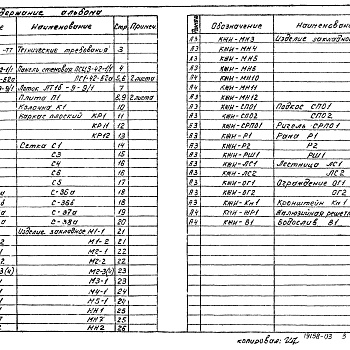 держание альбома
Наименование Стр. Примеч.
Технические требования 3
4
Панель стеновая 5,6 2 листа
Лоток 7
Плита П1 8,9 2 листа
Колонна К1 10
Каркас плоский КР1 11
КР11 12
КР12 13
Сетка С1 14
С3 15
С4 16
С6 16
С5 17
С-36а 18
С-36б 18
С-37а 19
С-38а 20
Изделие закладное М1-1 21
М1-2 21
М2-1 22
М2-2 22
23
М3-1 23
М4-1 24
М5-1 24
МН1 25
МН2 26
Обозначение Наименован
А3 КЖИ-МН3 Изделие закладное
А3 КЖИ-МН4
А3 КЖИ-МН5
А3 КЖИ-МН6
А4 КЖИ-МН10
А3 КЖИ-МН11
А3 КЖИ-МН12
А3 КЖИ-СП01 Подкос СП01
А3 КЖИ-СП02 СП02
А3 КЖИ-СРП01 Ригель СРП01
А3 КЖИ-Р1 Рама Р1
А3 КЖИ-Р2 Р2
А3 КЖИ-РШ1 РШ1
А3 КЖИ-ЛС1 Лестница ЛС1
А3 КЖИ-ЛС2 ЛС2
А3 КЖИ-ОГ1 Ограждение ОГ1
А3 КЖИ-ОГ2 ОГ2
А3 КЖИ-Кн1 Кронштейн Кн1
А4 Жалюзийная решетк
А4 КЖИ-В1 Водослив В1
копировал: 19198-03 5